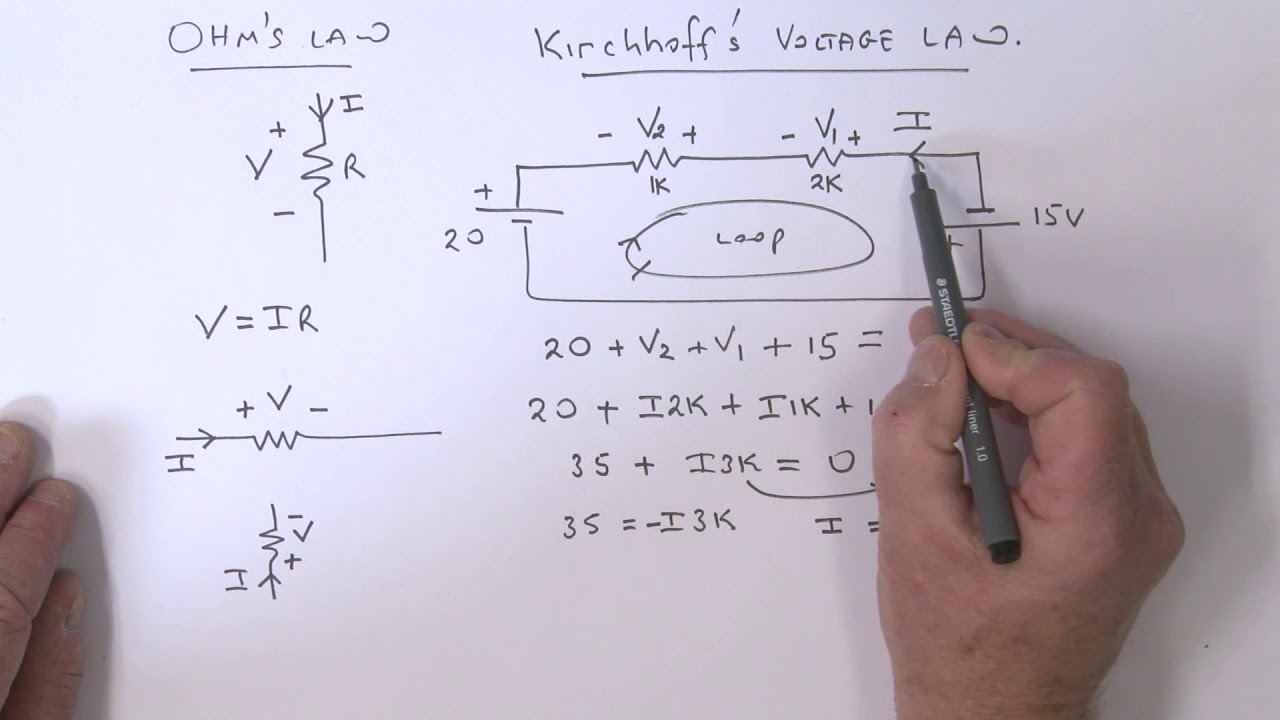 OHM'S LAW
I
+
V
R
-
V = IR
+ V -
I
-
V
+
I
Kirchhoff's VOLTAGE LAW.
- V2 + - V1 + I
1K 2K
+
20
LOOP
15V
+
20 + V2 + V1 + 15 =
20 + I2K + I1K + 1
35 + I3K = 0
35 = -I3K I =
STAEDTLER
liner 1.0